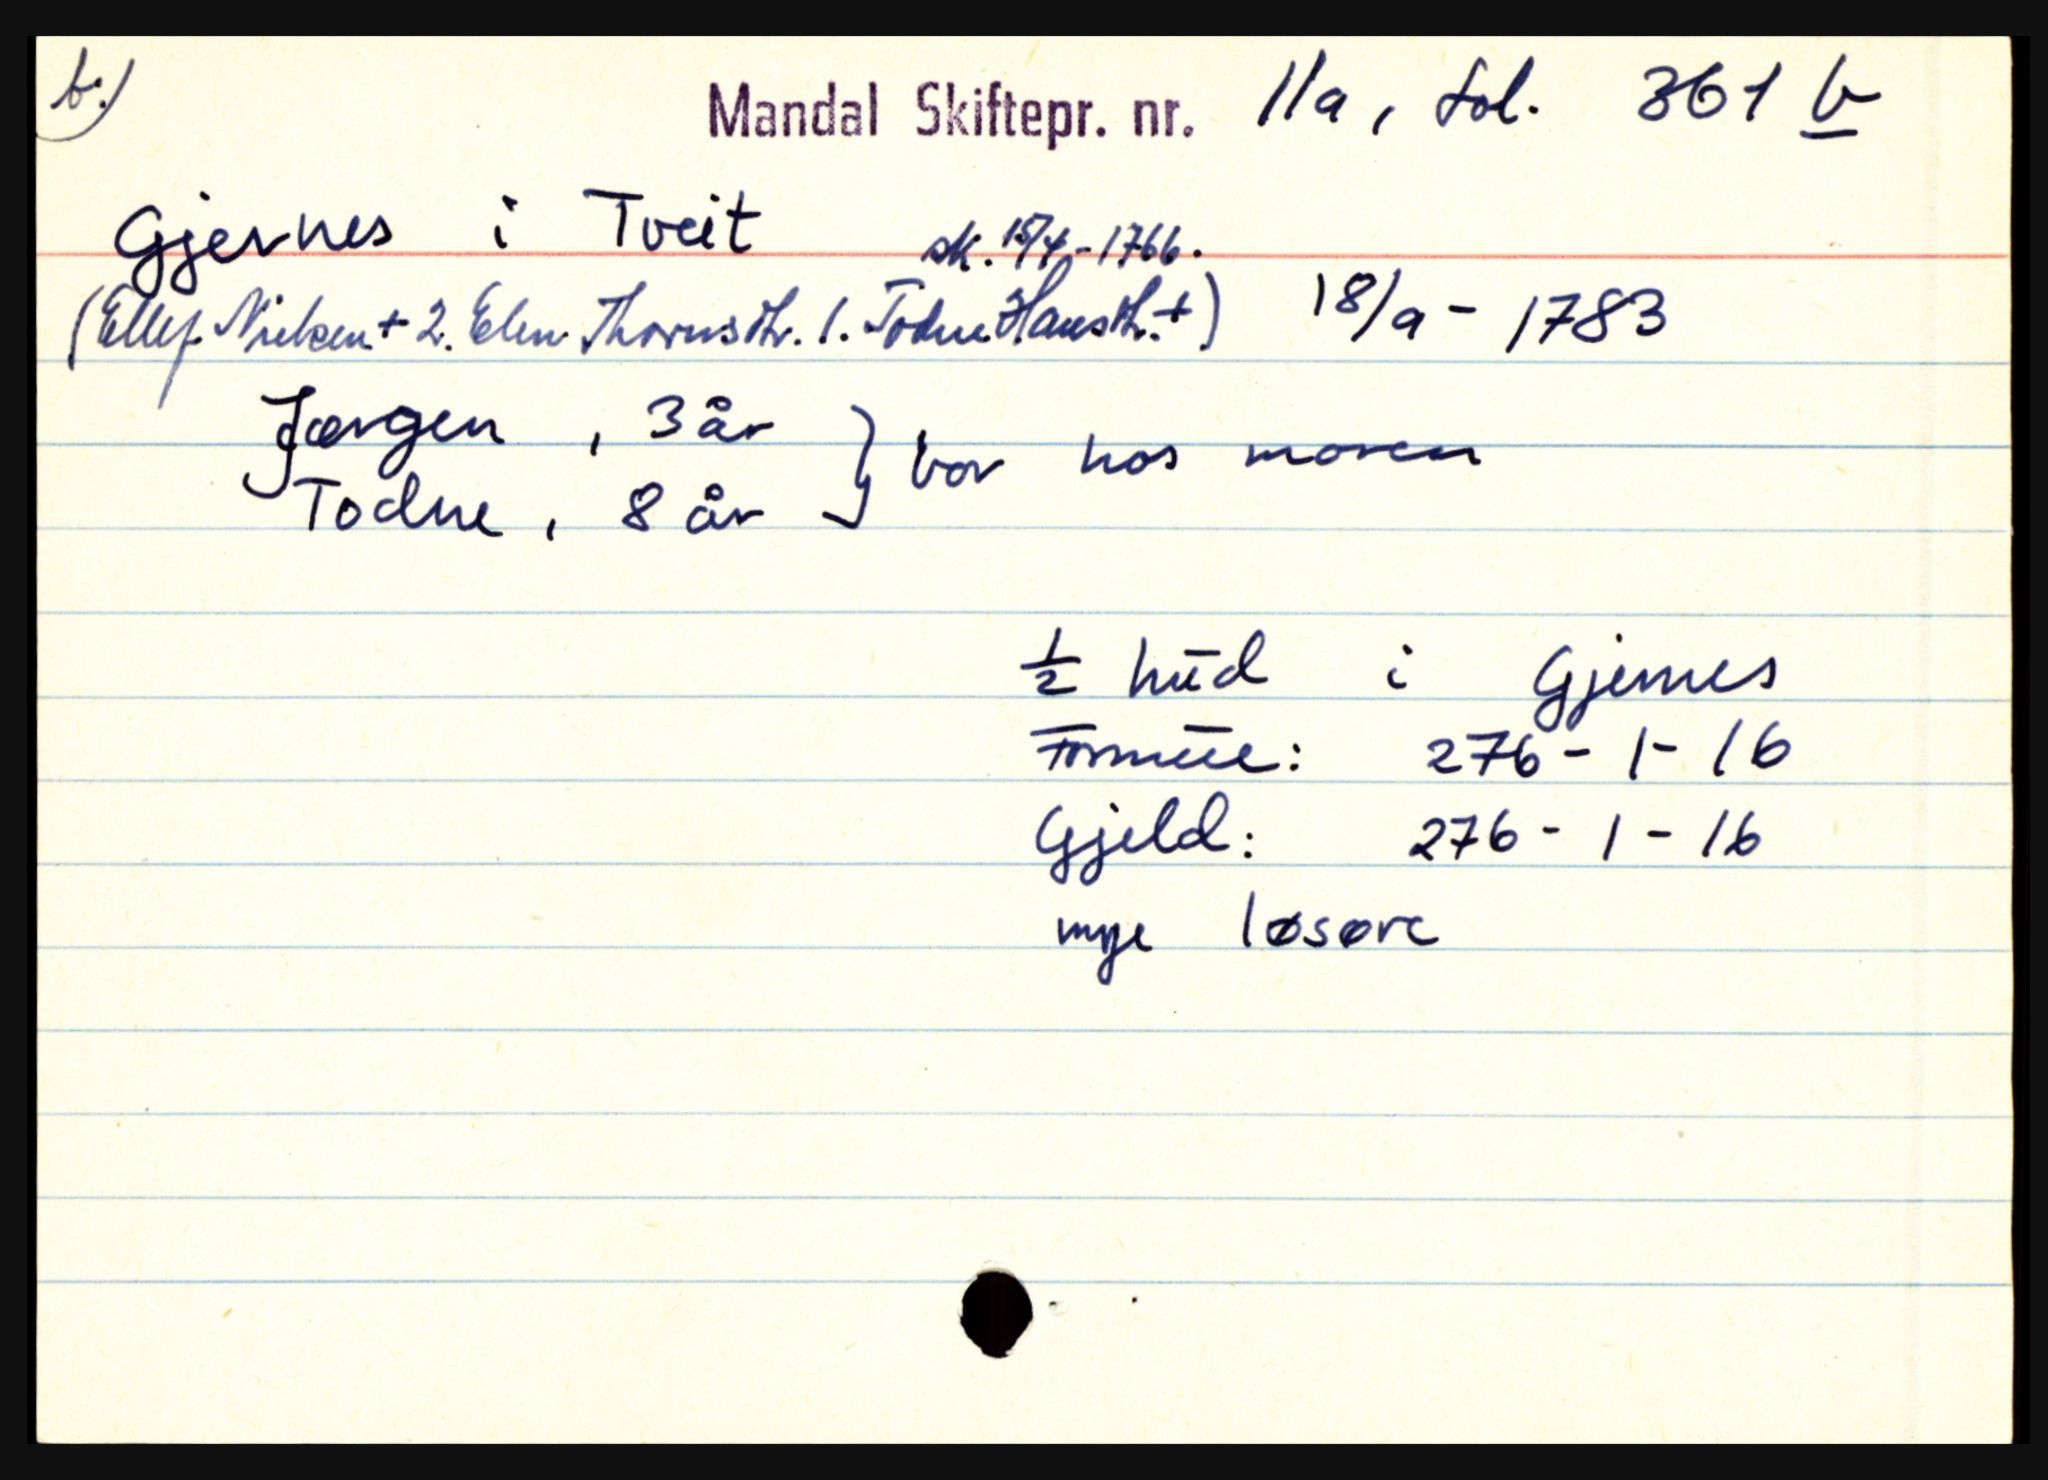 b.)
Mandal Skiftepr. nr. 11a, fol. 361 b
Gjernes i Tveit sk. 15/4-1766.
(Ellef Nielsen + 2. Elen Thorsdtr. 1. Todne Hansdtr. +) 18/9 - 1783
Jørgen, 3 år } bor hos moren
Todne, 8 år
1/2 hud i Gjernes
Formue: 276 - 1 - 16
Gjeld: 276 - 1 - 16
mye løsøre